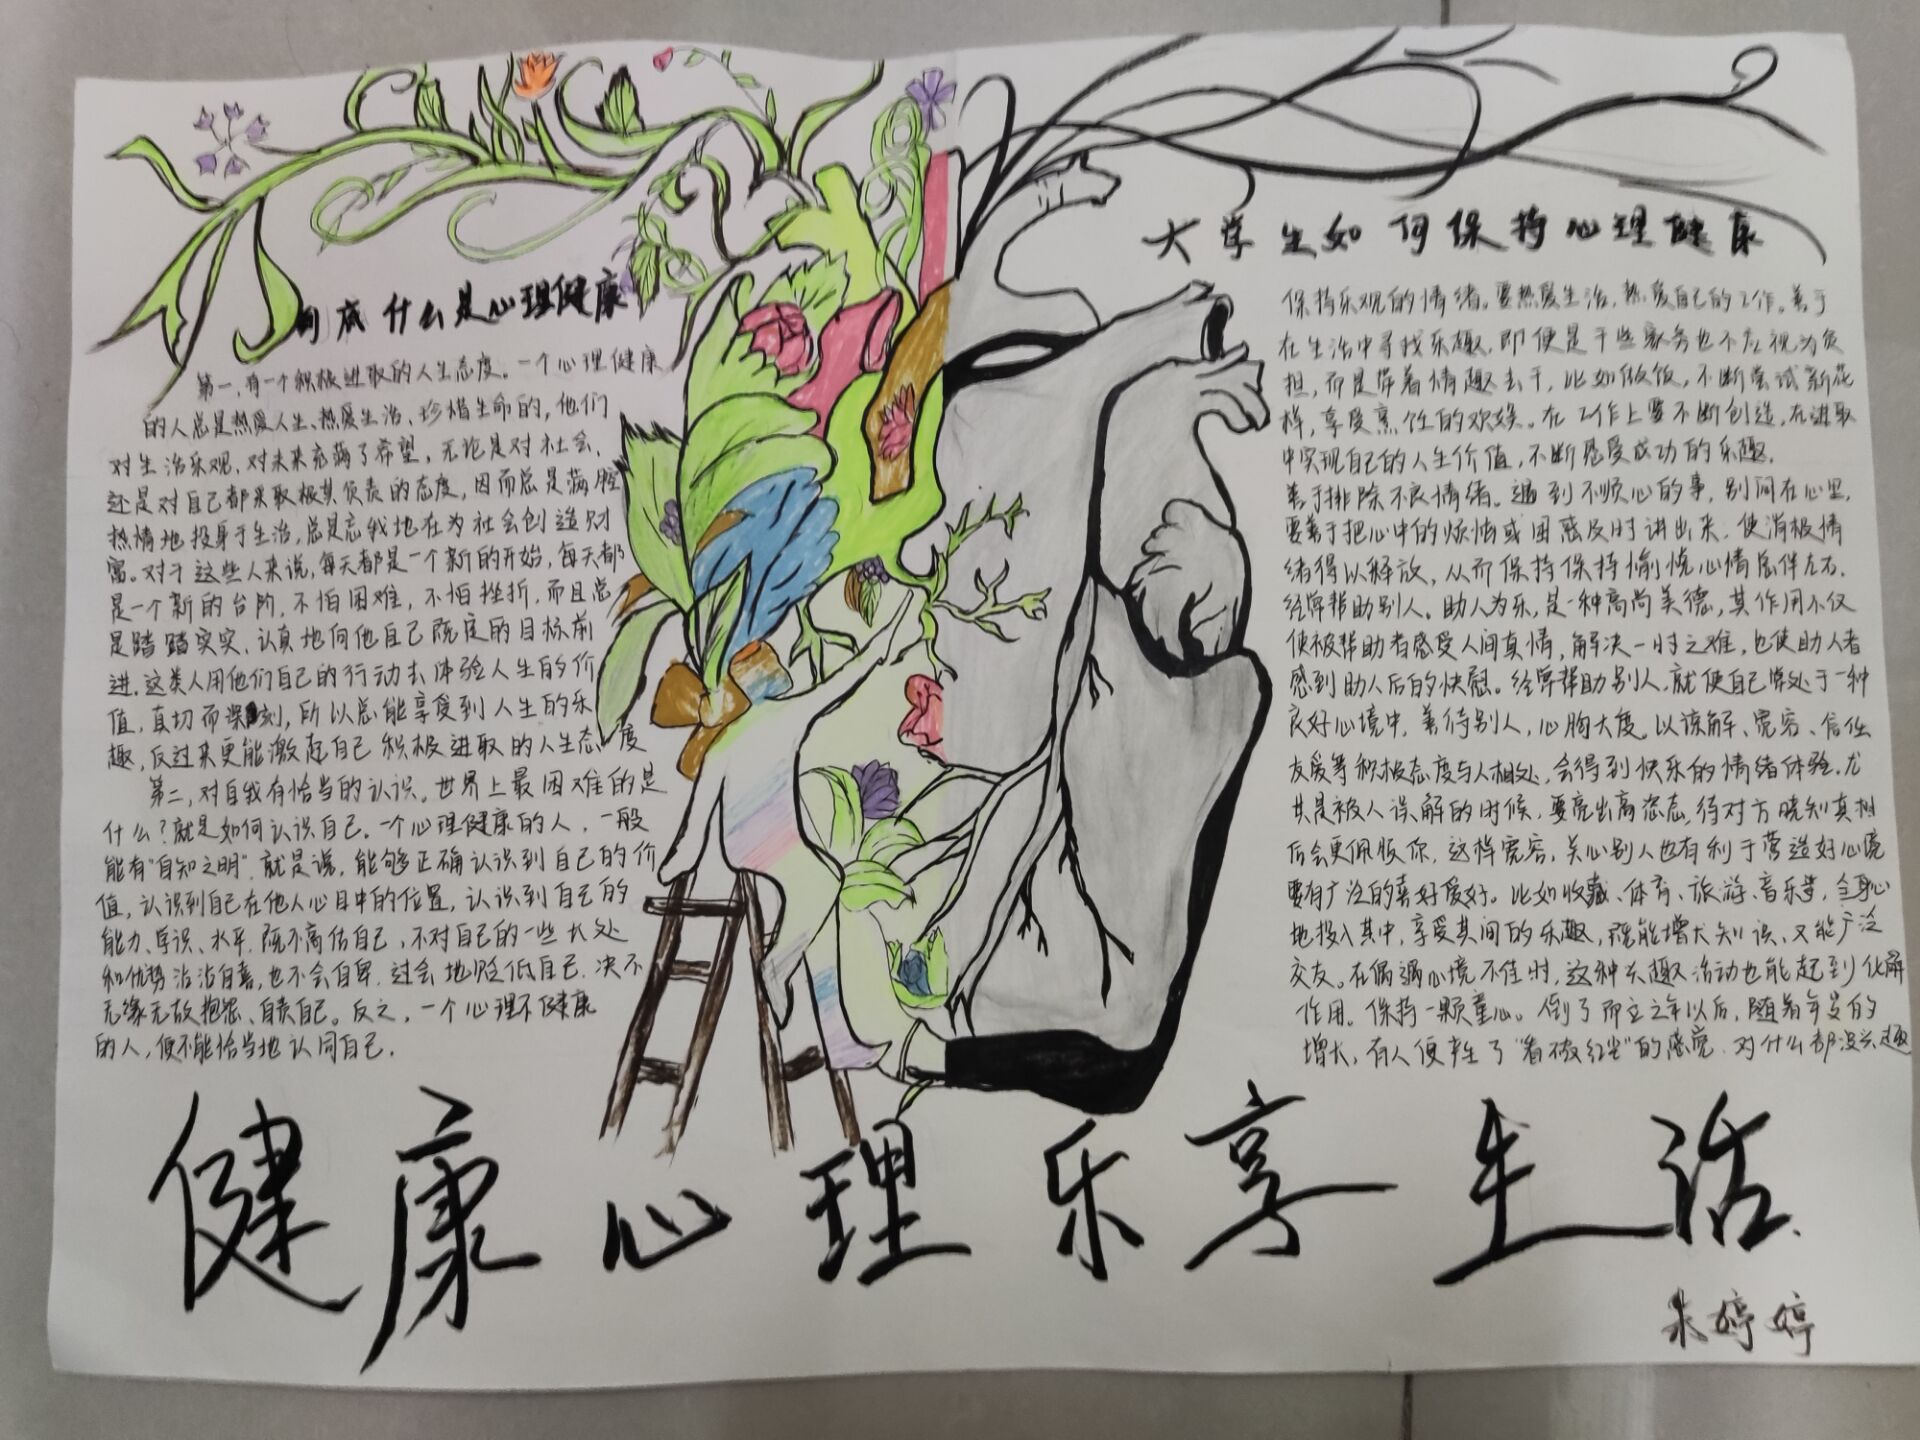 什么是心理健康
第一，有一个积极进取的人生态度。一个心理健康
的人总是热爱人生、热爱生活、珍惜生命的，他们
对生活乐观，对未来充满了希望，无论是对社会，
还是对自己都采取极其负责的态度，因而总是满腔
热情地投身于生活，总是忘我地在为社会创造财
富。对于这些人来说，每天都是一个新的开始，每天都
是一个新的台阶，不怕困难，不怕挫折，而且总
是踏踏实实、认真地向他自己既定的目标前
进。这类人用他们自己的行动去体验人生的价
值，真切而深刻，所以总能享受到人生的乐
趣，反过来更能激起自己积极进取的人生态度
第二，对自我有恰当的认识。世界上最困难的是
什么？就是如何认识自己。一个心理健康的人，一般
能有“自知之明”，就是说，能够正确认识到自己的价
值，认识到自己在他人心目中的位置，认识到自己的
能力、学识、水平，既不高估自己，不对自己的一些长处
和优势沾沾自喜，也不会自卑，过会地贬低自己，决不
无缘无故抱怨、自责自己。反之，一个心理不健康
的人，便不能恰当地认同自己．
大学生如何保持心理健康
保持乐观的情绪。要热爱生活，热爱自己的工作。善于
在生活中寻找乐趣，即便是干些家务也不应视为负
担，而是带着情趣去干，比如做饭，不断尝试新花
样，享受烹饪的欢娱。在工作上要不断创造，在进取
中实现自己的人生价值，不断感受成功的乐趣．
善于排除不良情绪。遇到不顺心的事，别闷在心里，
要善于把心中的烦恼或困惑及时讲出来，使消极情
绪得以释放，从而保持保持愉悦心情居伴左右．
经常帮助别人。助人为乐，是一种高尚美德，其作用不仅
使被帮助者感受人间真情，解决一时之难，也使助人者
感到助人后的快慰。经常帮助别人，就使自己常处于一种
良好心境中，善待别人，心胸大度。以谅解、宽容、信任
友爱等积极态度与人相处，会得到快乐的情绪体验．尤
其是被人误解的时候，要亮出高姿态，待对方晓知真相
后会更佩服你．这样宽容，关心别人也有利于营造好心境
要有广泛的喜好爱好。比如收藏、体育、旅游、音乐等，全身心
地投入其中，享受其间的乐趣，既能增长知识、又能广泛
交友。在偶遇心境不佳时，这种乐趣活动也能起到化解
作用。保持一颗童心。到了而立之年以后，随着年岁的
增长，有人便产生了“看破红尘”的感觉，对什么都没兴趣
健康心理乐享生活．
朱婷婷